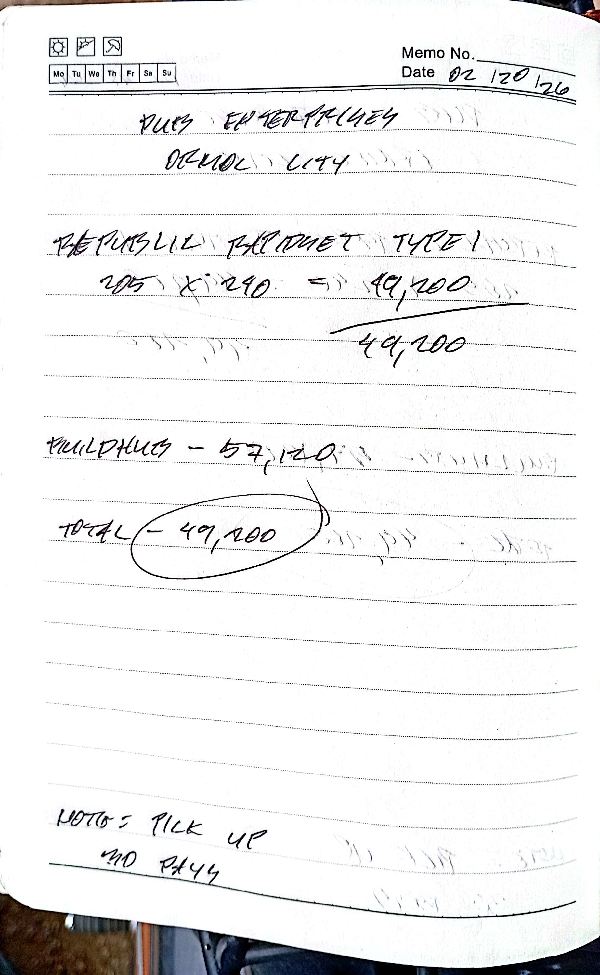 Memo No.
Date 02/20/26
Mo Tu We Th Fr Sa Su
ENTERPRISES
ORMOC CITY
REPUBLIC RAPIDSET TYPE 1
205 x 240 = 49,200
49,200
BUILDHUB - 57,120
TOTAL - 49,200
NOTE: PICK UP
30 DAYS